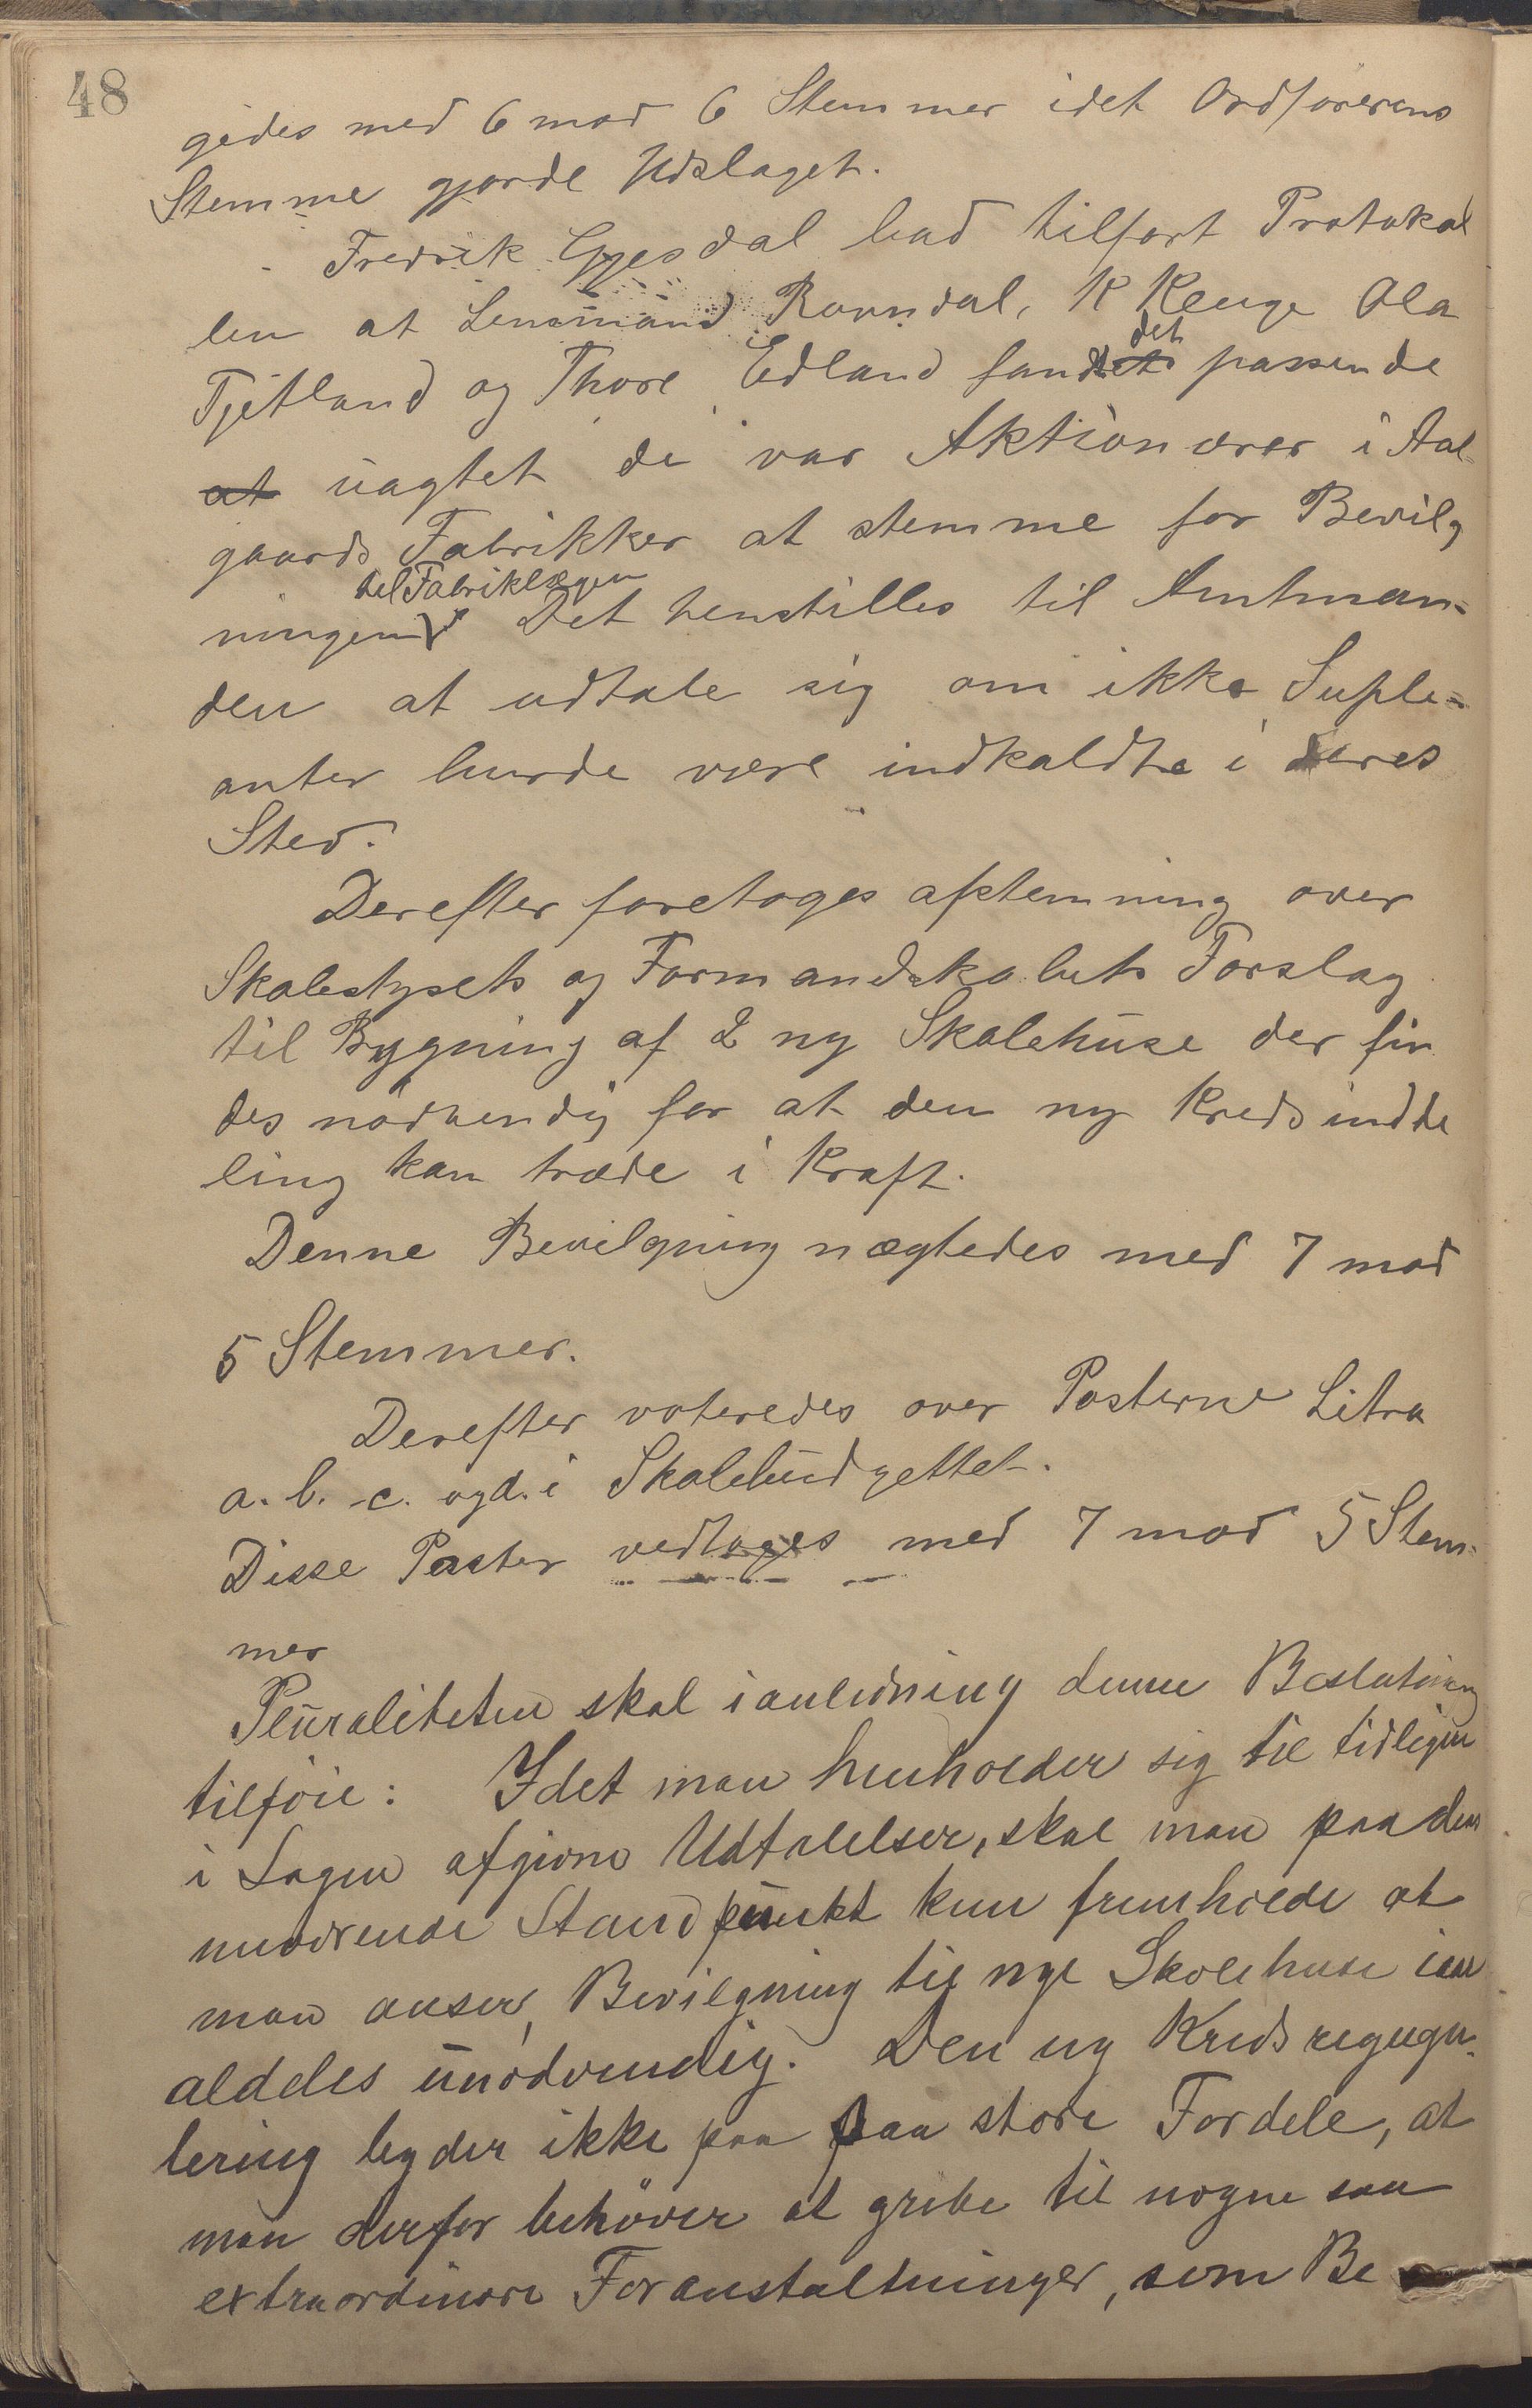 48
gedes med 6 mod 6 Stemmer idet Ordførerens
Stemme gjorde Udslaget.
Fredrik Gjesdal bad tilført Protokol
len at Lensmand Ravndal, K Kluge Ola
Tjetland og Thore Edland fandt det passende
at uagtet de var Aktionærer i Aal-
gaards Fabrikker at stemme for Bevilg
ningen til Fabriklægen. Det henstilles til Amtman-
den at udtale sig om ikke Suple-
anter burde være indkaldte i deres
Sted.
Derefter foretoges afstemning over
Skolestyrets og Formandskabets Forslag
til Bygning af 2 ny Skolehuse der fin
des nødvendig for at den ny Kredsindde
ling kan træde i Kraft.
Denne Bevilgning nægtedes med 7 mod
5 Stemmer.
Derefter voteredes over Posterne Litra
a. b. c. og d. i Skolebudgettet.
Disse Poster vedtoges med 7 mod 5 Stem-
mer
Pluraliteten skal i anledning denne Beslutning
tilføie: Idet man henholder sig til tidligere
i Sagen afgivne Udtalelser, skal man paa det
nuværende Standpunkt kun fremholde at
man anser Bevilgning til nye Skolehuse iaar
aldeles unødvendig. Den ny Kredsregugu-
lering byder ikke paa saa store Fordele, at
man derfor behøver at gribe til nogne saa
extraordinære Foranstaltninger, som Be